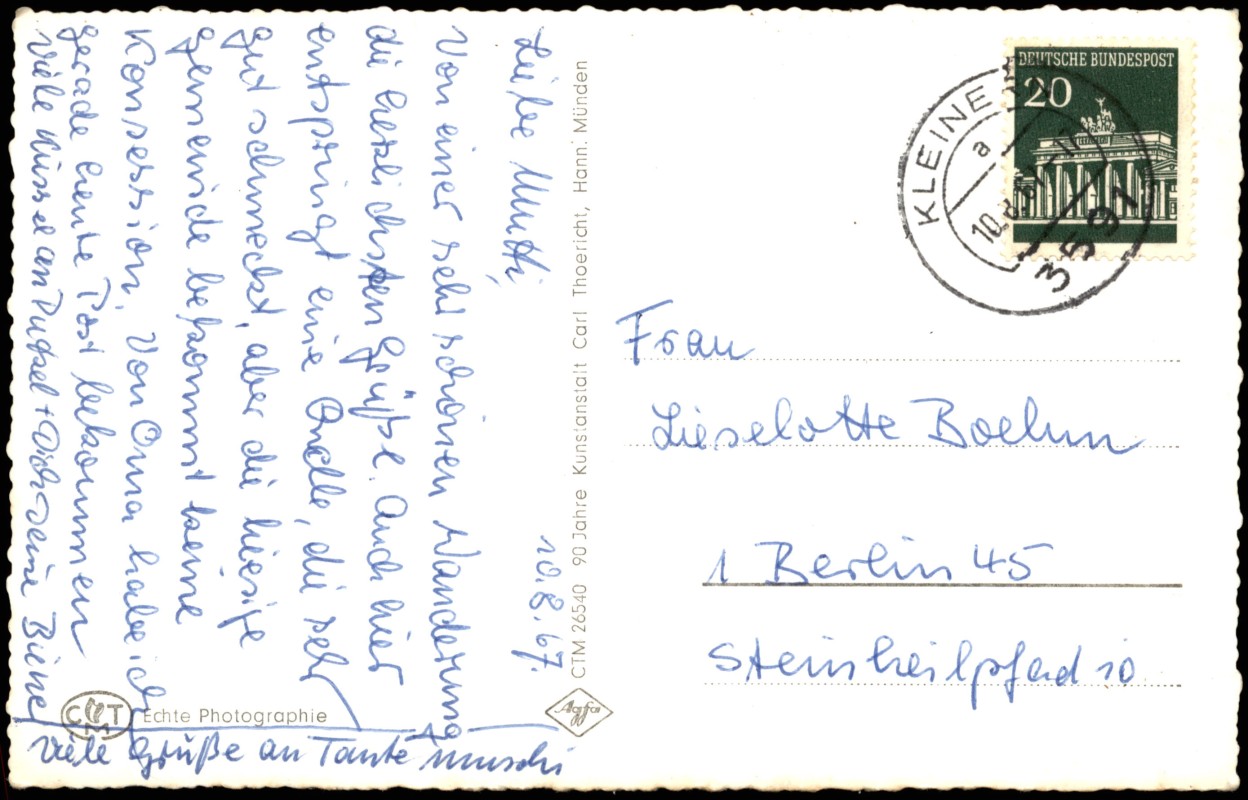 10.8.67.
Liebe Mutti,
Von einer sehr schönen Wanderung
die herzlichsten Grüße. Auch hier
entspringt eine Quelle, die sehr
gut schmeckt, aber die hiesige
gemeinde bekommt keine
Konsession. Von Oma habe ich
gerade heute Post bekommen
Viele Küsse an Putzel + Dich Deine Biene
Viele Grüße an Tante Muschi
CMT Echte Photographie
CTM 26540 90 Jahre Kunstanstalt Carl Thoericht, Hann. Münden
Agfa
DEUTSCHE BUNDESPOST
20
KLEINE
a
10.8.67
3591
Frau
Lieselotte Boehm
1 Berlin 45
Steinheilpfad 10